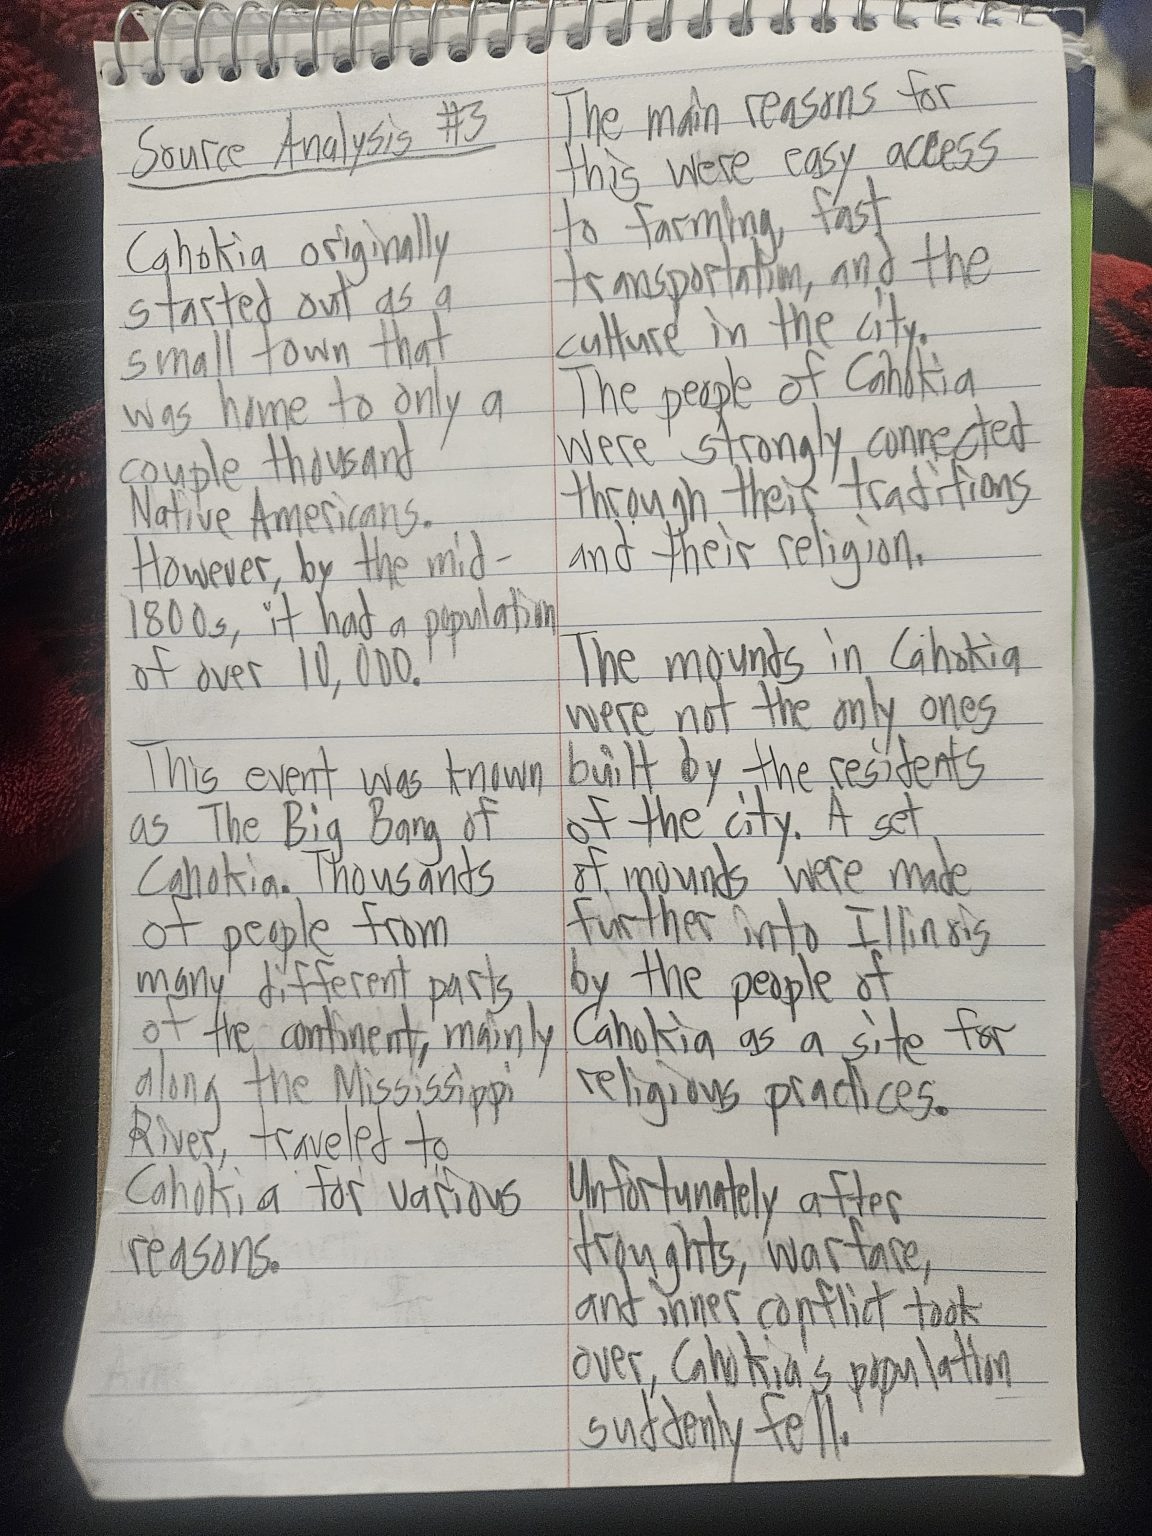 Source Analysis #3
Cahokia originally
started out as a
small town that
was home to only a
couple thousand
Native Americans.
However, by the mid-
1800s, it had a population
of over 10,000.
This event was known
as The Big Bang of
Cahokia. Thousands
of people from
many different parts
of the continent, mainly
along the Mississippi
River, traveled to
Cahokia for various
reasons.
The main reasons for
this were easy access
to farming, fast
transportation, and the
culture in the city.
The people of Cahokia
were strongly connected
through their traditions
and their religion.
The mounds in Cahokia
were not the only ones
built by the residents
of the city. A set
of mounds were made
further into Illinois
by the people of
Cahokia as a site for
religious practices.
Unfortunately after
droughts, warfare,
and inner conflict took
over, Cahokia's population
suddenly fell.